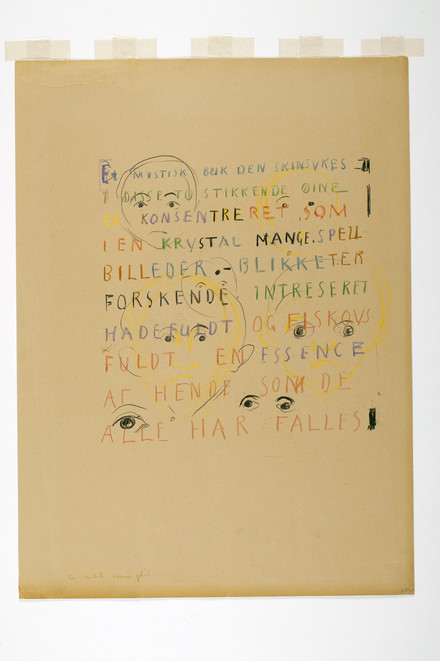 Et MYSTISK BLIK DEN SKINSYKES
I DISSE TO STIKKENDE ØINE
ER KONSENTRERET SOM
I EN KRYSTAL MANGE SPEIL
BILLEDER .- BLIKKET ER
FORSKENDE INTRESERET
HADEFULDT OG ELSKOVS
FULDT EN ESSENCE
AF HENDE SOM DE
ALLE HAR FALLES